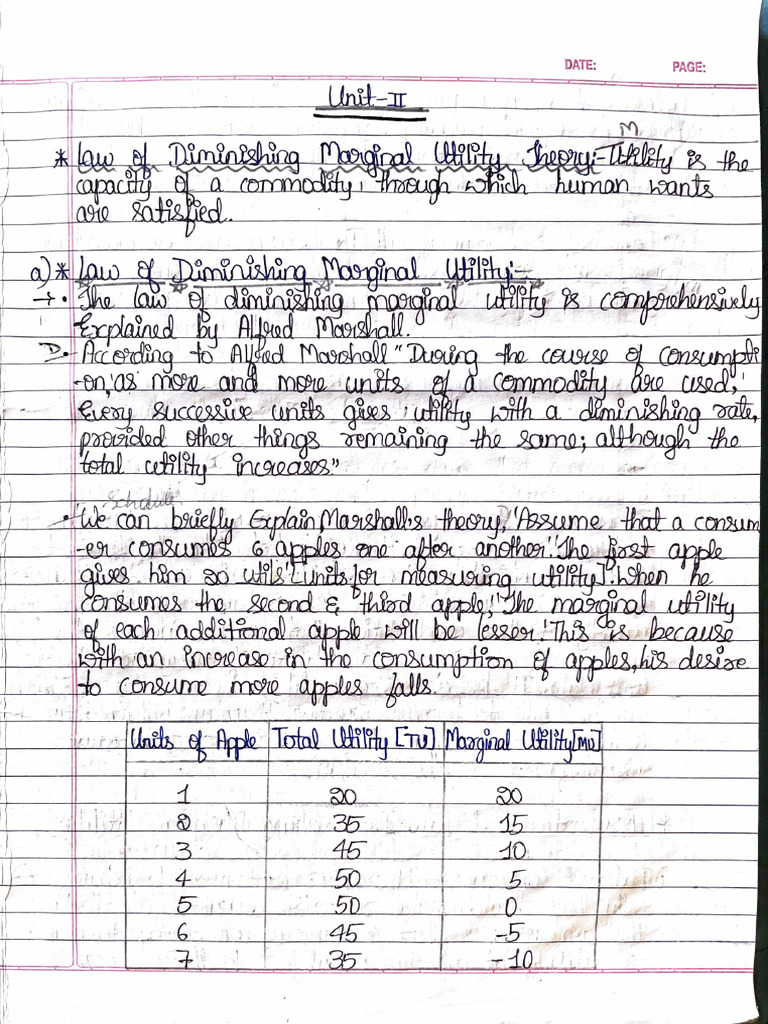 DATE: PAGE:
Unit-II
M
* Law of Diminishing Marginal Utility Theory:- Utility is the
capacity of a commodity, through which human wants
are satisfied.
a) * Law of Diminishing Marginal Utility:-
→ • The law of diminishing marginal utility is comprehensively
Explained by Alfred Marshall.
D. • According to Alfred Marshall "During the course of consumpti
-on, as more and more units of a commodity are used,
Every successive units gives utility with a diminishing rate,
provided other things remaining the same; although the
total utility increases."
Schdule
• We can briefly Explain Marshall's theory, "Assume that a consum
-er consumes 6 apples one after another. The first apple
gives him 20 utils [units for measuring utility]. When he
consumes the second & third apple, The marginal utility
of each additional apple will be lesser. This is because
with an increase in the consumption of apples, his desire
to consume more apples falls.
Units of Apple Total Utility [TU] Marginal Utility [MU]
1 20 20
2 35 15
3 45 10
4 50 5
5 50 0
6 45 -5
7 35 -10